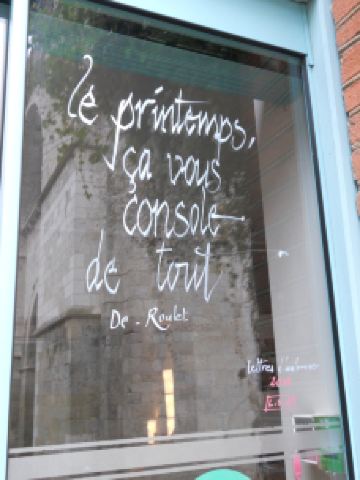 le printemps,
ça vous
console
de tout
De - Roulet